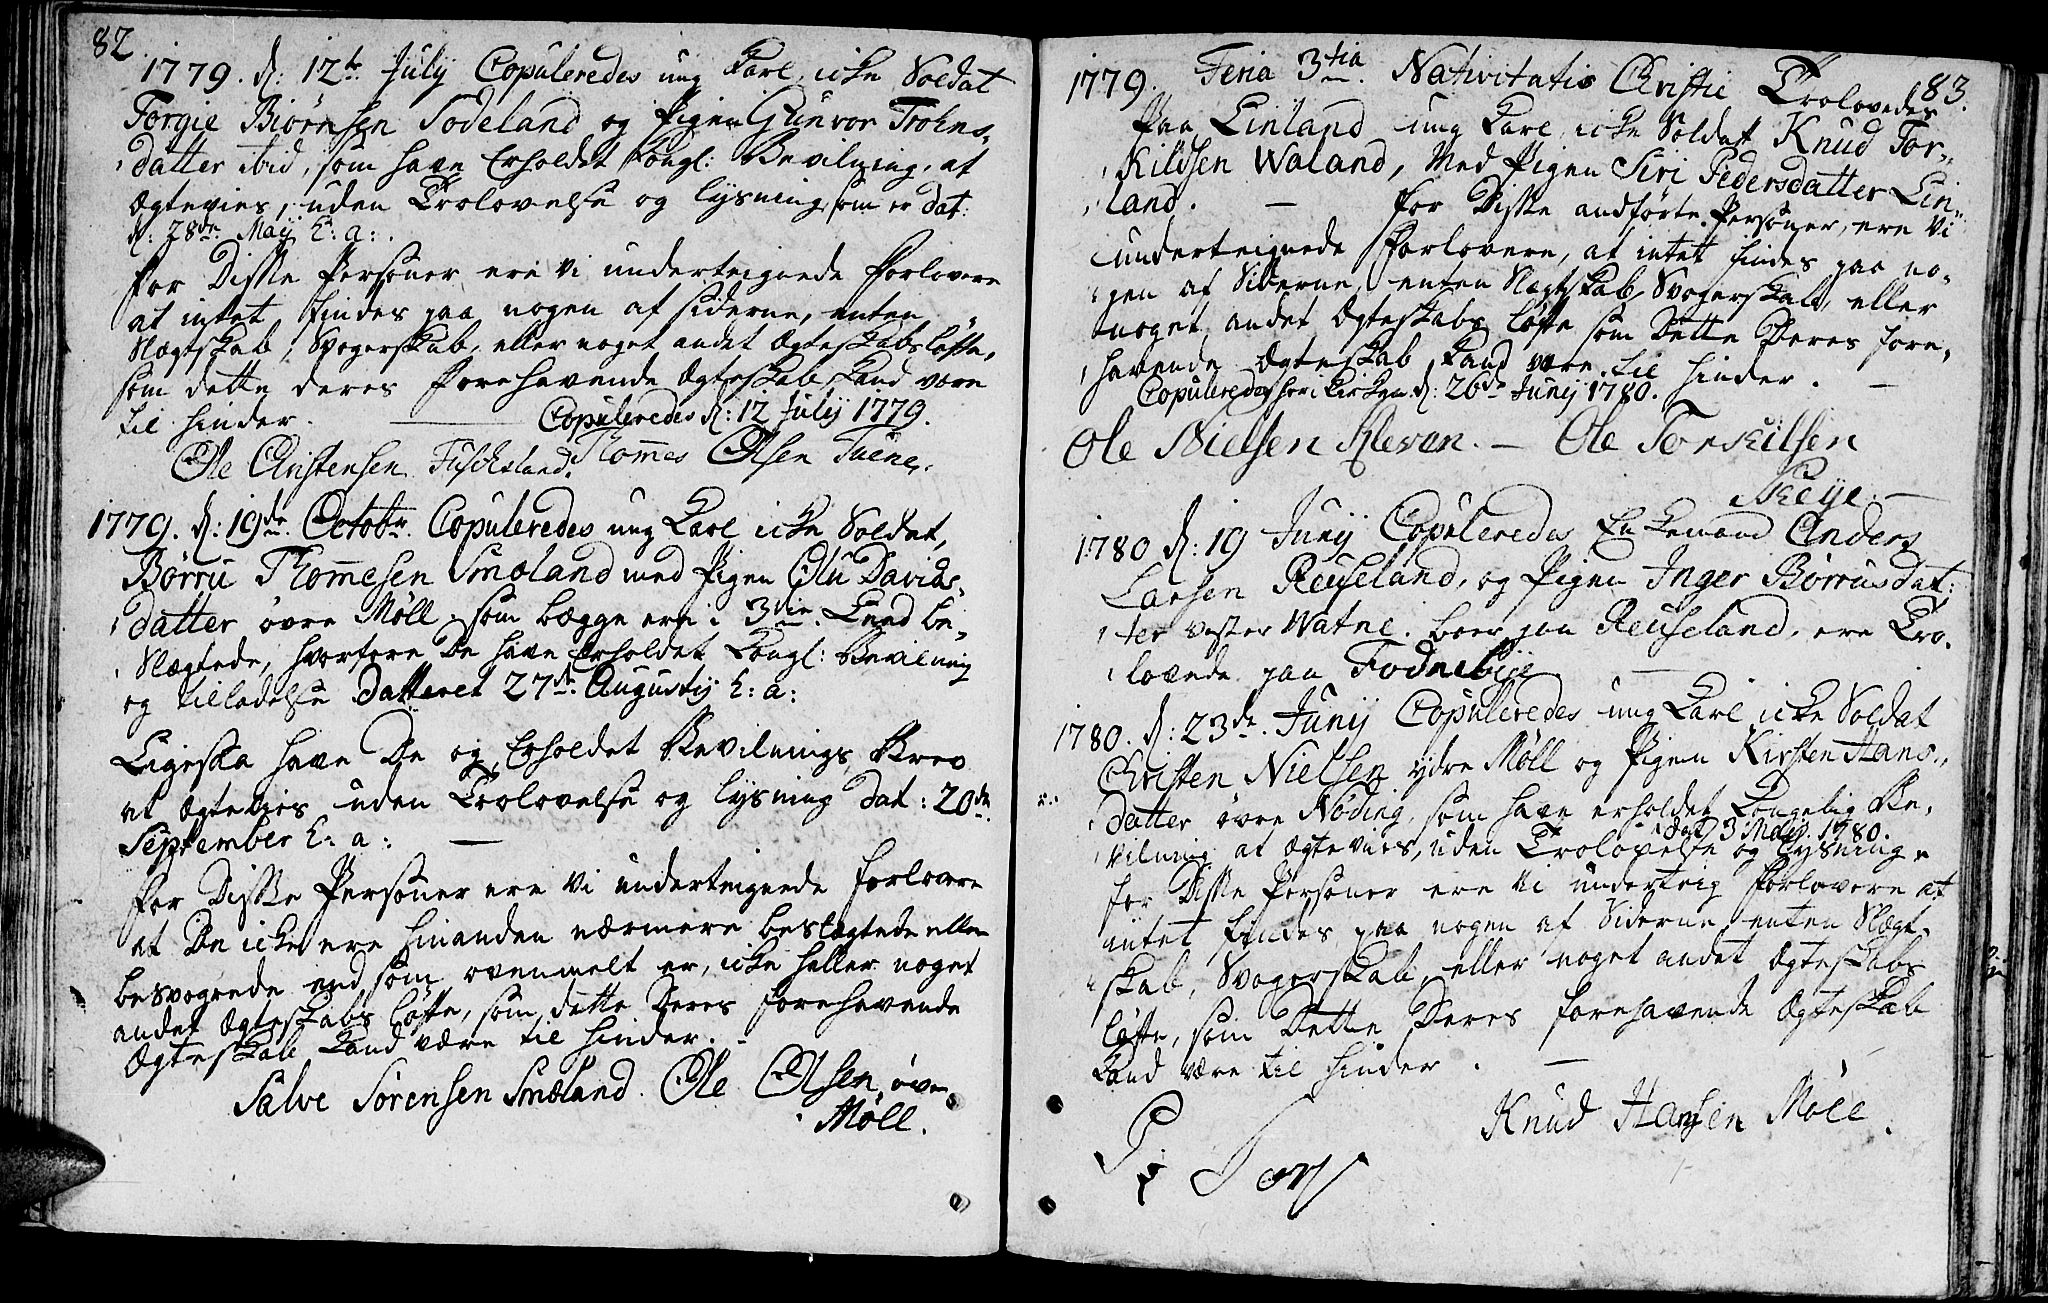 82.
1779. d: 12te July Copuleredes ung Karl, icke Soldat
Torgie Biørnsen Sodeland og Pigen Gunvor Trohns-
datter ibid, som have Erholdet Kongl: Bevilning, at
Ægtevies, uden Trolovelse og lysning, som er dat:
d: 28de Maij h: a:.
For Disse Personer ere vi undertegnede Forlovere
at intet findes paa nogen af siderne, enten
Slægtskab, Svogerskab, eller noget andet Ægteskabsløfte,
som dette deres Forehavende Ægteskab kand være
til hinder. Copuleredes d: 12 Julij 1779.
Ole Christensen Fuskeland. Thommes Olsen Tuene.
1779. d: 19de Octobr. Copuleredes ung Karl icke Soldat,
Børru Thommesen Smeland med Pigen Olu Davids-
datter øvre Møll, som begge ere i 3die Leed be-
Slægtede, hvorfore De have Erholdet Kongl: Bevilning
og tilladelse Datteret 27de Augustij h: a:
Ligesaa have De og Erholdet Bevilnings Brev
at Ægtevies uden Trolovelse og lysning dat: 20de
September h: a:
For Disse Personer ere vi undertegnede forlovere
at De icke ere hinanden nærmere beslægtede eller
besvogrede end som ovenmelt er, icke heller noget
andet Ægteskabs løfte, som dette Deres forehavende
Ægteskab kand være til hinder.
Salve Sørensen Smeland. Ole Olsen øvre
Møll.
83.
1779. Feria 3tia Nativitatis Christie Trolovedes
paa Linland ung Karl icke Soldat Knud Tor-
kildsen Waland, med Pigen Siri Pedersdatter Lin-
land. For Disse andførte Personer, ere vi
undertegnede Forlovere, at intet findes paa no-
gen af Siderne, enten Slægtskab, Svogerskab, eller
noget andet Ægteskabs løfte som Dette Deres fore-
havende Ægteskab kand være til hinder.
Copuleredes her i kirken d: 26de Junij 1780.
Ole Nielsen Kleven. Ole Torkilsen
Skeye.
1780 d: 19 Junij Copuleredes Enkemand Anders
Larsen Reuseland, og Pigen Inger Børrusdat-
ter vester Watne. boer paa Reuseland, ere Tro-
lovede paa Fodnebye
1780. d: 23de Junij Copuleredes ung Karl icke Soldat
Christen Nielsen ydre Møll og Pigen Kirsten Hans-
datter øvre Nøding, som have erholdet Kongelig Be-
dat 3 Maij 1780.
vilning at Ægtevies, uden Trolovelse og lysning.
for Disse Personer ere vi underteig Forlovere at
intet findes paa nogen af Siderne enten Slægt-
skab, Svogerskab, eller noget andet Ægteskabs
løfte, som Dette Deres forehavende Ægteskab
kand være til hinder.
Knud Hansen Møll.